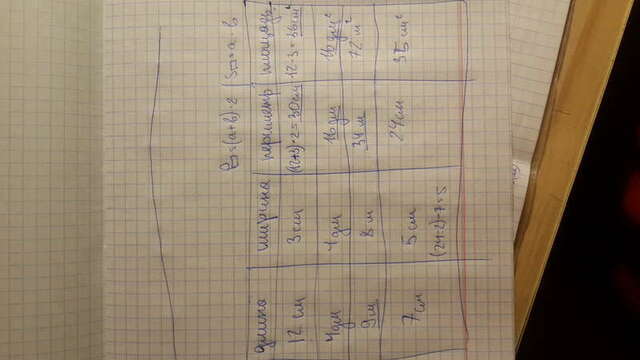 P▭=(a+b)·2 S▭=a·b
длина ширина периметр площадь
12 см 3 см (12+3)·2=30см 12·3=36см²
4дм 4дм 16 дм 16 дм²
9м 8 м 34 м 72 м²
7 см 5 см 24 см 35 см²
(24:2)-7=5